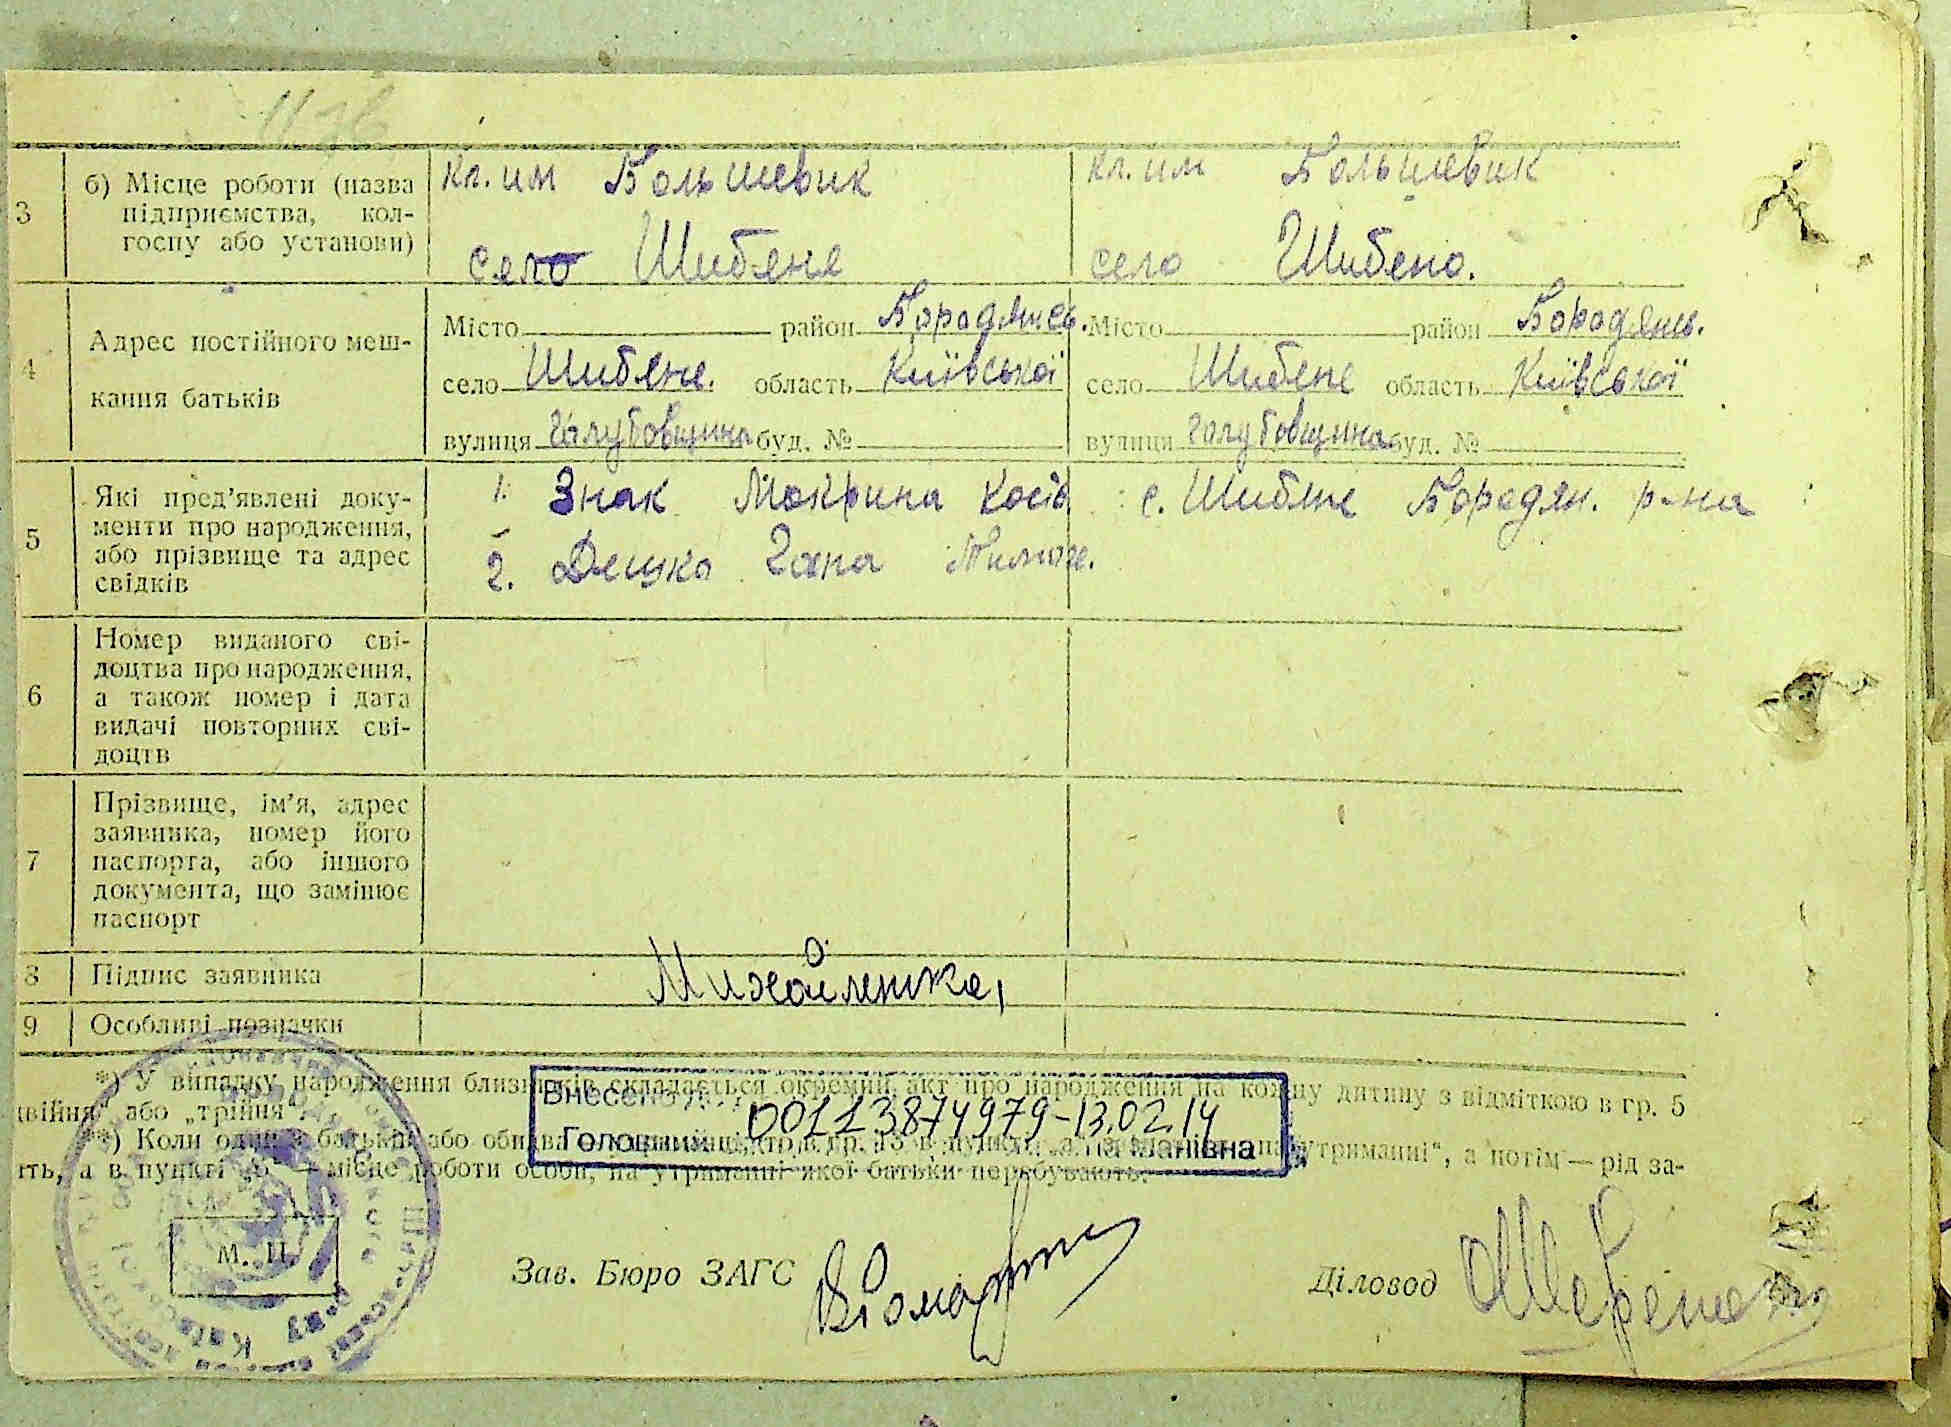 3 б) Місце роботи (назва підприємства, кол-госпу або установи)
кл. им Большевик
село Шибене
кл. им Большевик
село Шибено.
4 Адрес постійного меш-
кання батьків
Місто район Бородянсь.
село Шибене. область Київської
вулиця Галубовщина буд. №
Місто район Бородянсь.
село Шибене область Київської
вулиця Галубовщина буд. №
5 Які пред'явлені доку-
менти про народження,
або прізвище та адрес
свідків
1. Знак Мокрина Косів с. Шибене Бородян. р-на
2. Гана Тимох.
6 Номер виданого сві-
доцтва про народження,
а також номер і дата
видачі повторних сві-
доцтв
7 Прізвище, ім'я, адрес
заявника, номер його
паспорта, або іншого
документа, що замінює
паспорт
8 Підпис заявника
Михайленка,
9 Особливі позначки
*) У випадку народження близнюків складається окремий акт про народження на кожну дитину з відміткою в гр. 5
або „трійня“.
Внесено 00113874979-13.02.14
**) Коли один з батьків або обидва „на утриманні“, а потім — рід за-
Головний
а в пункті „б“ — місце роботи особи, на утриманні якої батьки перебувають.
М. П.
Зав. Бюро ЗАГС
Діловод